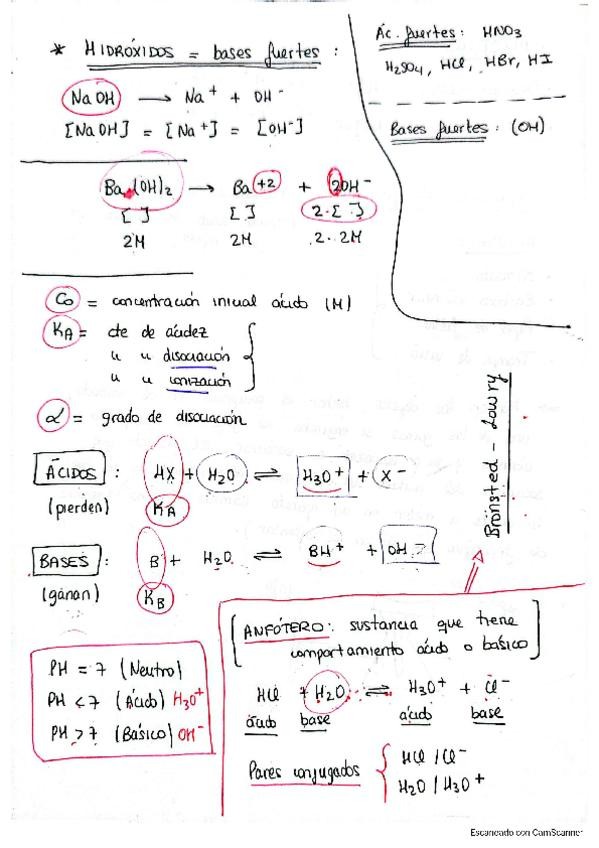 * HIDRÓXIDOS = bases fuertes :
NaOH → Na⁺ + OH⁻
[NaOH] = [Na⁺] = [OH⁻]
Ác. fuertes : HNO3
H2SO4, HCl, HBr, HI
Bases fuertes : (OH)
Ba(OH)2 → Ba⁺² + 2OH⁻
[ ] [ ] 2·[ ]
2M 2M 2·2M
Co = concentración inicial ácido (M)
KA = cte de acidez
" " disociación
" " ionización
α = grado de disociación
ÁCIDOS : HX + H2O ⇌ H3O⁺ + X⁻
(pierden) KA
BASES : B + H2O ⇌ BH⁺ + OH⁻
(ganan) KB
Brönsted - Lowry
PH = 7 (Neutro)
PH < 7 (Ácido) H3O⁺
PH > 7 (Básico) OH⁻
ANFÓTERO: sustancia que tiene
comportamiento ácido o básico
HCl + H2O ⇌ H3O⁺ + Cl⁻
ácido base ácido base
Pares conjugados { HCl / Cl⁻
H2O / H3O⁺
Escaneado con CamScanner